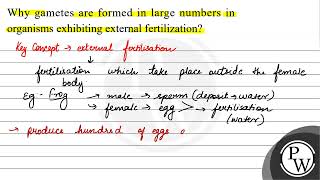 Why gametes are formed in large numbers in
organisms exhibiting external fertilization?
Key Concept → external fertilisation
fertilisation which take place outside the female
body
Eg - Frog → male → sperm (deposit → water)
→ female → egg → fertilisation
(water)
→ produce hundred of eggs
PW